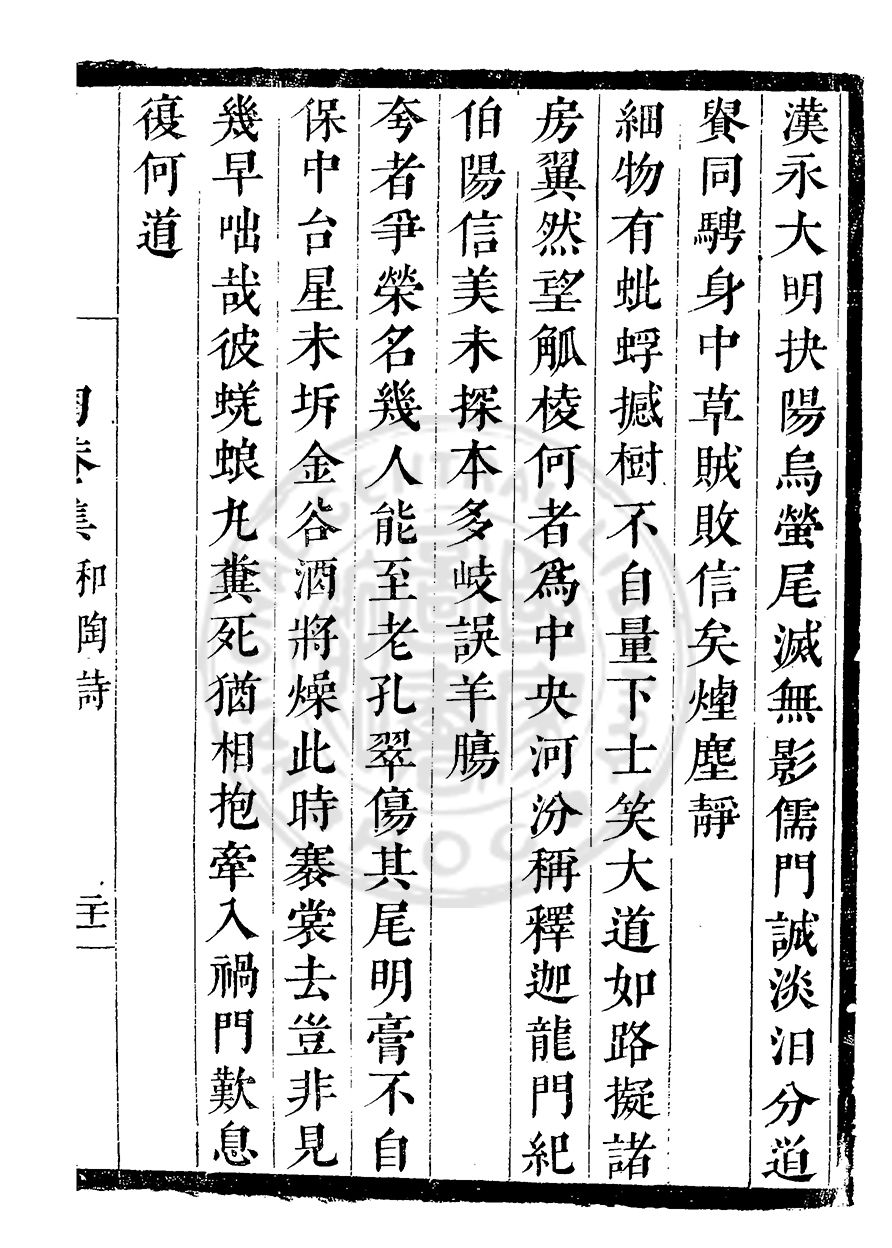 漢永大明抉陽烏螢尾滅無影儒門誠淡汨分道
㸑同騁身中草賊敗信矣煙塵靜
細物有蚍蜉撼樹不自量下士笑大道如路擬諸
房翼然望觚棱何者爲中央河汾稱釋迦龍門紀
伯陽信美未探本多岐誤羊腸
夸者爭榮名幾人能至老孔翠傷其尾明膏不自
保中台星未坼金谷酒將燥此時褰裳去豈非見
幾早咄哉彼蜣蜋丸糞死猶相抱牽入禍門歎息
復何道
陶菴集
和陶詩
二十一